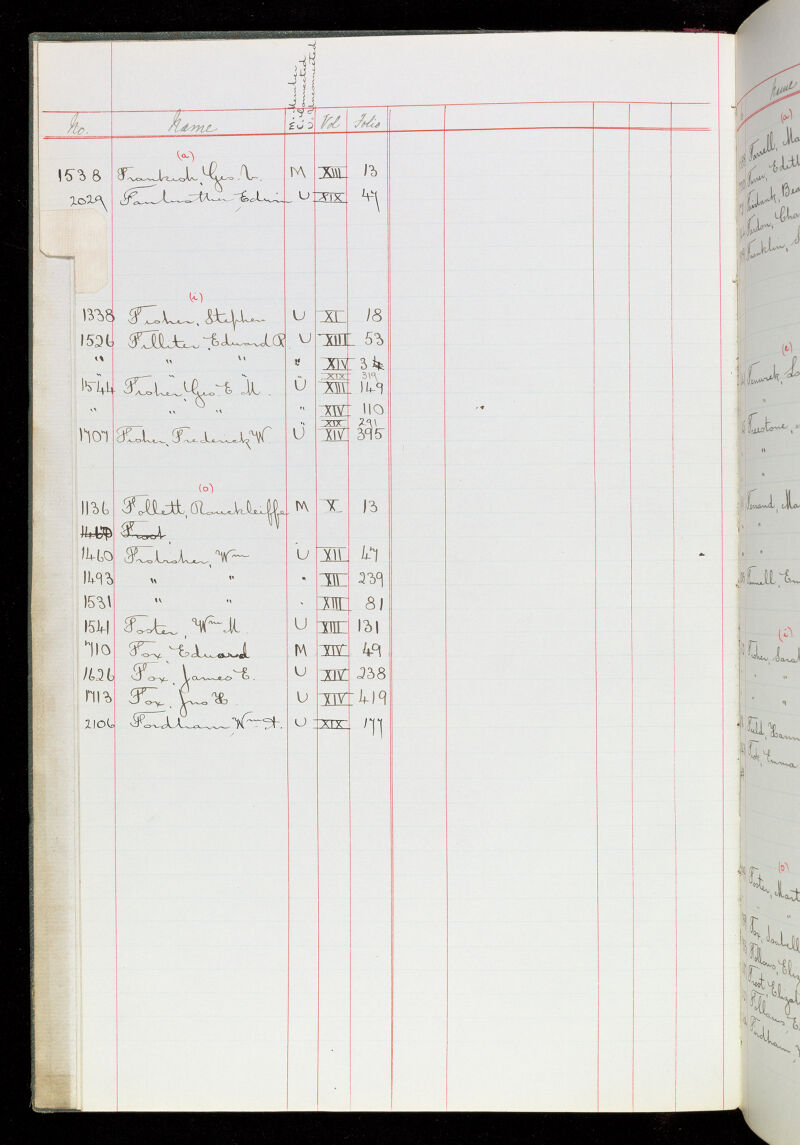 M. Member
C. Connected
U. Unconnected
No. Name Vol Folio
(a)
1538 Frankish, Geo. V. M XIII 13
2029 Edwin U XIX 47
(i)
1338 Fisher, Stephen U XI 18
1526 Filliter, Edward R U XIII 53
" " " " XIV 34
" " " " XIX 319
1544 Fisher, Geo. E. M. U XIII 149
" " " " XIV 110
" XIX 291
1707 Fisher, Frederick W. U XIV 395
(o)
1136 Follett, M X 13
1460 Frost
1460 Wm U XII 47
1493 " " " XII 239
1531 " " " XIII 81
1541 Foster, Wm. M. U XIII 131
710 Fox, Edward M XIV 49
1626 Fox, James E. U XIV 238
1713 Fox, Jno H. U XIV 419
2106 Fordham Wm. A. U XIX 177
Name
(a)
Farrell, Ma
Edith
Fairbank, Bea
Cha
Franklin,
(e)
Fenwick,
Freestone,
"
"
Ma
" "
Em
(i)
Fisher, Sara
" "
" "
Field, Hann
Emma
(o)
Foster, Mart
" "
Fox, Isabell
Follows, Eliz
Frost, Elizab
Follows, E
Fordham,